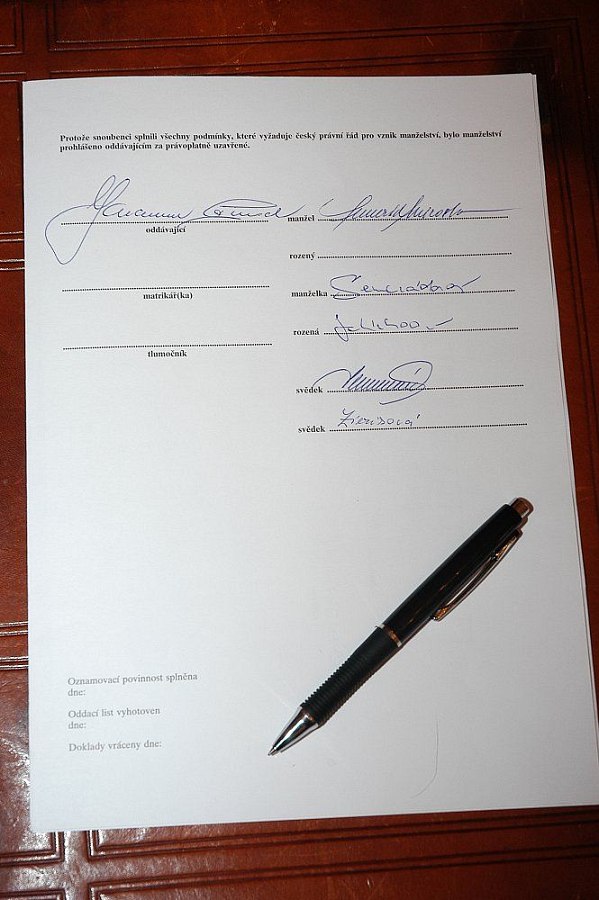 Protože snoubenci splnili všechny podmínky, které vyžaduje český právní řád pro vznik manželství, bylo manželství
prohlášeno oddávajícím za právoplatně uzavřené.
oddávající
manžel
rozený
matrikář(ka)
manželka
rozená
tlumočník
svědek
svědek
Oznamovací povinnost splněna
dne:
Oddací list vyhotoven
dne:
Doklady vráceny dne: